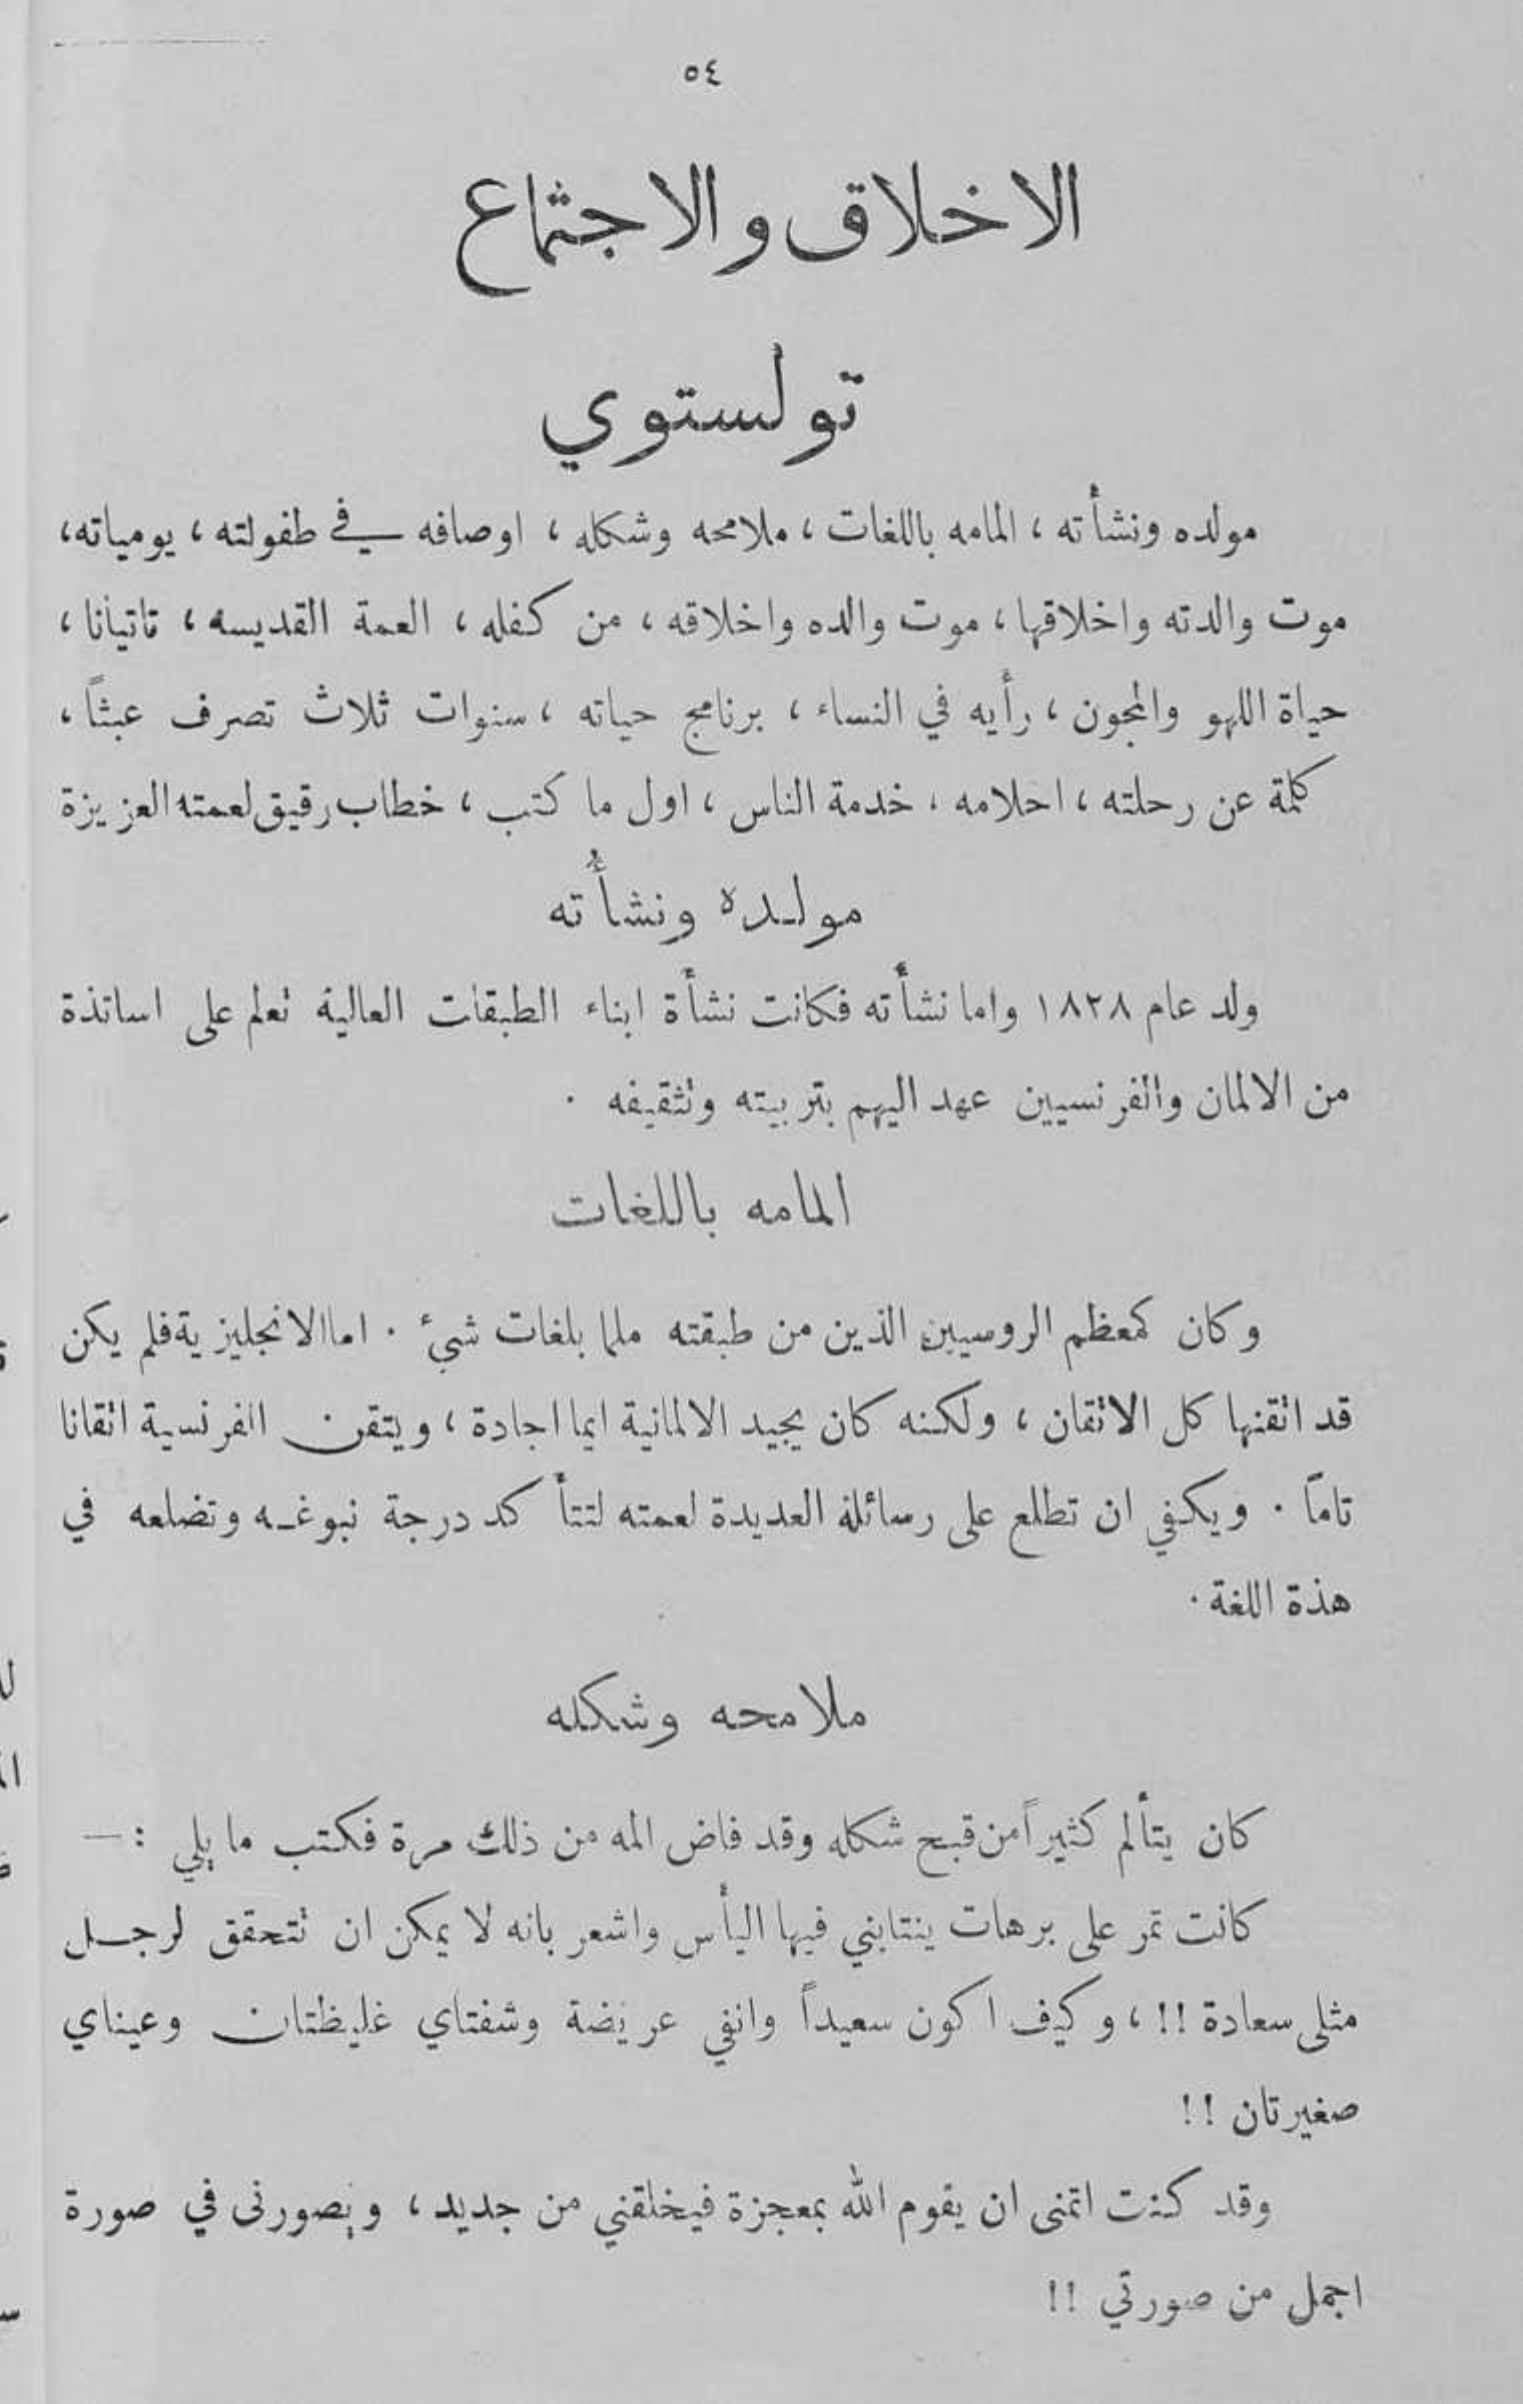 ٥٤
الاخلاق والاجتماع
تولستوي
مولده ونشأته ، المامه باللغات ، ملامحه وشكله ، اوصافه في طفولته ، يومياته،
موت والدته واخلاقها ، موت والده واخلاقه ، من كفله ، العمة القديسه ، تاتيانا ،
حياة اللهو والمجون ، رأيه في النساء ، برنامج حياته ، سنوات ثلاث تصرف عبثاً ،
كلمة عن رحلته ، احلامه ، خدمة الناس ، اول ما كتب ، خطاب رقيق لعمته العزيزة
مولده ونشأته
ولد عام ١٨٢٨ واما نشأته فكانت نشأة ابناء الطبقات العالية تعلم على اساتذة
من الالمان والفرنسيين عهد اليهم بتربيته وتثقيفه .
المامه باللغات
وكان كمعظم الروسيين الذين من طبقته ملما بلغات شيء . اما الانجليزية فلم يكن
قد اتقنها كل الاتقان ، ولكنه كان يجيد الالمانية ايما اجادة ، ويتقن الفرنسية اتقانا
تاماً . ويكفي ان تطلع على رسائله العديدة لعمته لتتأكد درجة نبوغه وتضلعه في
هذة اللغة .
ملامحه وشكله
كان يتألم كثيراً من قبح شكله وقد فاض المه من ذلك مرة فكتب ما يلي : —
كانت تمر على برهات ينتابني فيها اليأس واشعر بانه لا يمكن ان تتحقق لرجل
مثلى سعادة !! ، وكيف اكون سعيداً وانفي عريضة وشفتاي غليظتان وعيناي
صغيرتان !!
وقد كنت اتمنى ان يقوم الله بمعجزة فيخلقني من جديد ، ويصورنى في صورة
اجمل من صورتي !!